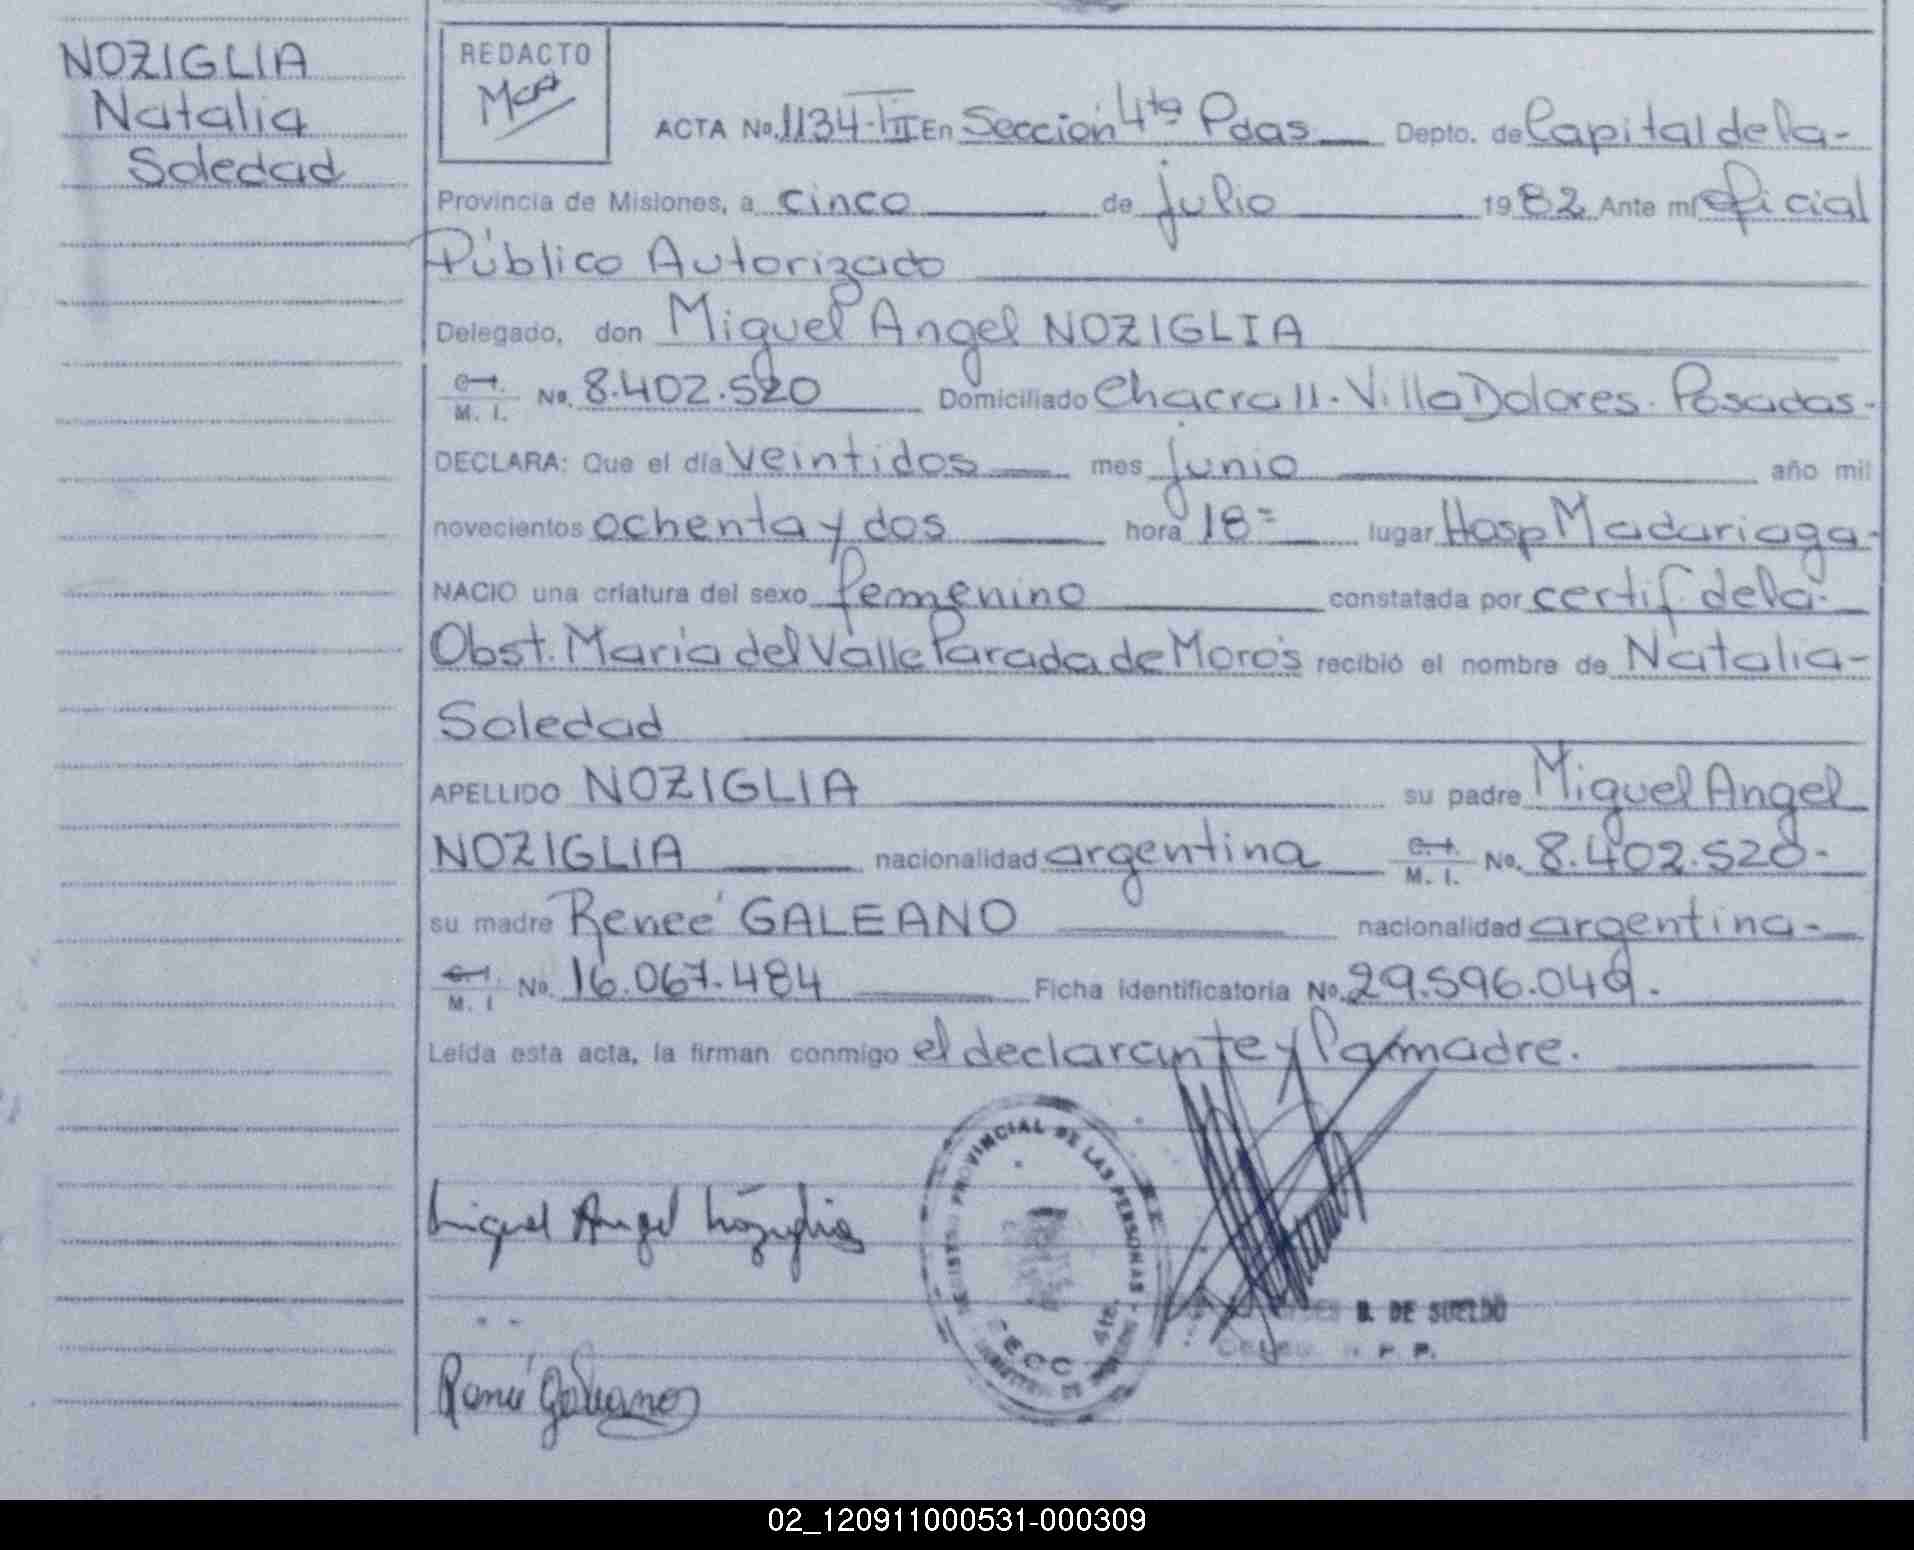 NOZIGLIA
Natalia
Soledad
REDACTO
ACTA No. 1134-TIII En Sección 4ta Pdas Depto. de Capital de la-
Provincia de Misiones, a cinco de julio 1982 Ante mí oficial
Público Autorizado
Delegado, don Miguel Angel NOZIGLIA
C. I. M. I. No. 8.402.520 Domiciliado Chacra 11. Villa Dolores. Posadas.
DECLARA: Que el día veintidos mes junio año mil
novecientos ochenta y dos hora 18= lugar Hosp Madariaga-
NACIO una criatura del sexo femenino constatada por certif. de la-
Obst. María del Valle Parada de Moros recibió el nombre de Natalia-
Soledad
APELLIDO NOZIGLIA su padre Miguel Angel
NOZIGLIA nacionalidad argentina C. I. M. I. No. 8.402.520-
su madre Reneé GALEANO nacionalidad argentina-
C. I. M. I No. 16.067.484 Ficha identificatoria No. 29.596.049.
Leída esta acta, la firman conmigo el declarante y la madre.
PROVINCIAL DE LAS PERSONAS
SECC 4ta.
Miguel Angel Noziglia
B. DE SUELDO
Reneé Galeano
02_120911000531-000309